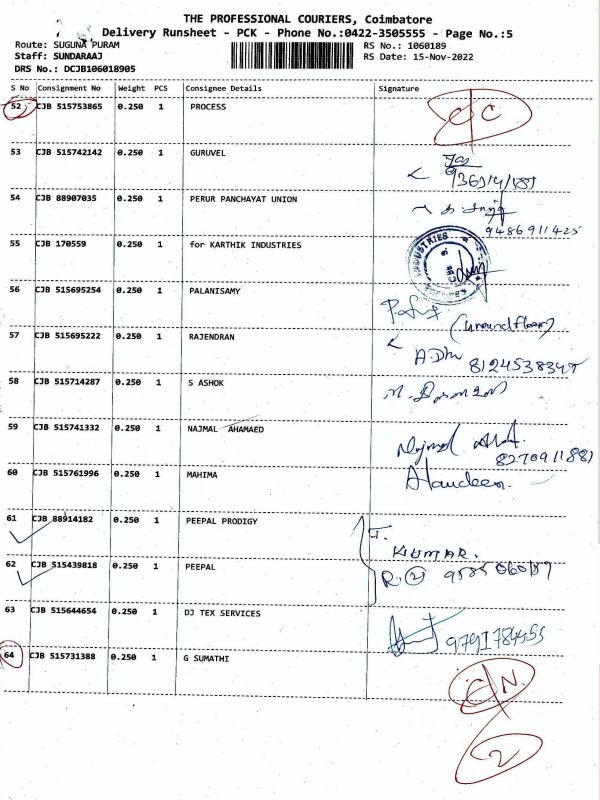 THE PROFESSIONAL COURIERS, Coimbatore
Delivery Runsheet - PCK - Phone No.:0422-3505555 - Page No.:5
Route: SUGUNA PURAM RS No.: 1060189
Staff: SUNDARAAJ RS Date: 15-Nov-2022
DRS No.: DCJB106018905
S No Consignment No Weight PCS Consignee Details Signature
52 CJB 515753865 0.250 1 PROCESS
53 CJB 515742142 0.250 1 GURUVEL
54 CJB 88907035 0.250 1 PERUR PANCHAYAT UNION
9486911425
55 CJB 170559 0.250 1 for KARTHIK INDUSTRIES
INDUSTRIES
56 CJB 515695254 0.250 1 PALANISAMY
(Groundfloor)
57 CJB 515695222 0.250 1 RAJENDRAN
8124538345
58 CJB 515714287 0.250 1 S ASHOK
59 CJB 515741332 0.250 1 NAJMAL AHAMAED
8270911881
60 CJB 515761996 0.250 1 MAHIMA
Alaudeen.
61 CJB 88914182 0.250 1 PEEPAL PRODIGY
J.
KUMAR.
62 CJB 515439818 0.250 1 PEEPAL
R. 2
63 CJB 515644654 0.250 1 DJ TEX SERVICES
9791784555
64 CJB 515731388 0.250 1 G SUMATHI
2